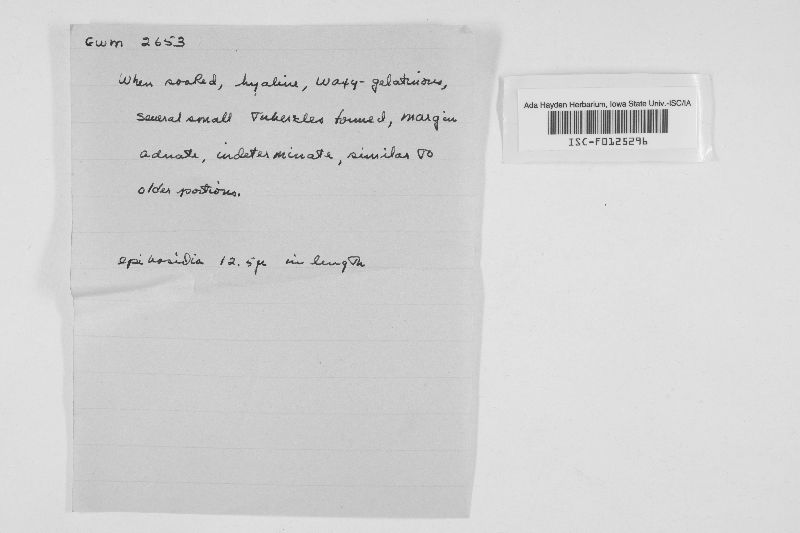 GWM 2653
When soaked, hyaline, waxy-gelatinous,
several small tubercles formed, margin
adnate, indeterminate, similar to
older portions.
epibasidia 12.5µ in length
Ada Hayden Herbarium, Iowa State Univ.-ISC/IA
ISC-F0125296